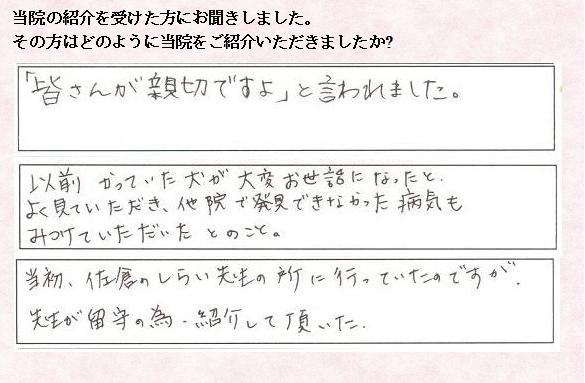 当院の紹介を受けた方にお聞きしました。
その方はどのように当院をご紹介いただきましたか?
「皆さんが親切ですよ」と言われました。
以前 かっていた犬が大変お世話になったと.
よく見ていただき、他院で発見できなかった病気も
みつけていただいた とのこと。
当初、佐倉のしらい先生の所に行っていたのですが.
先生が留守の為、紹介して頂いた.